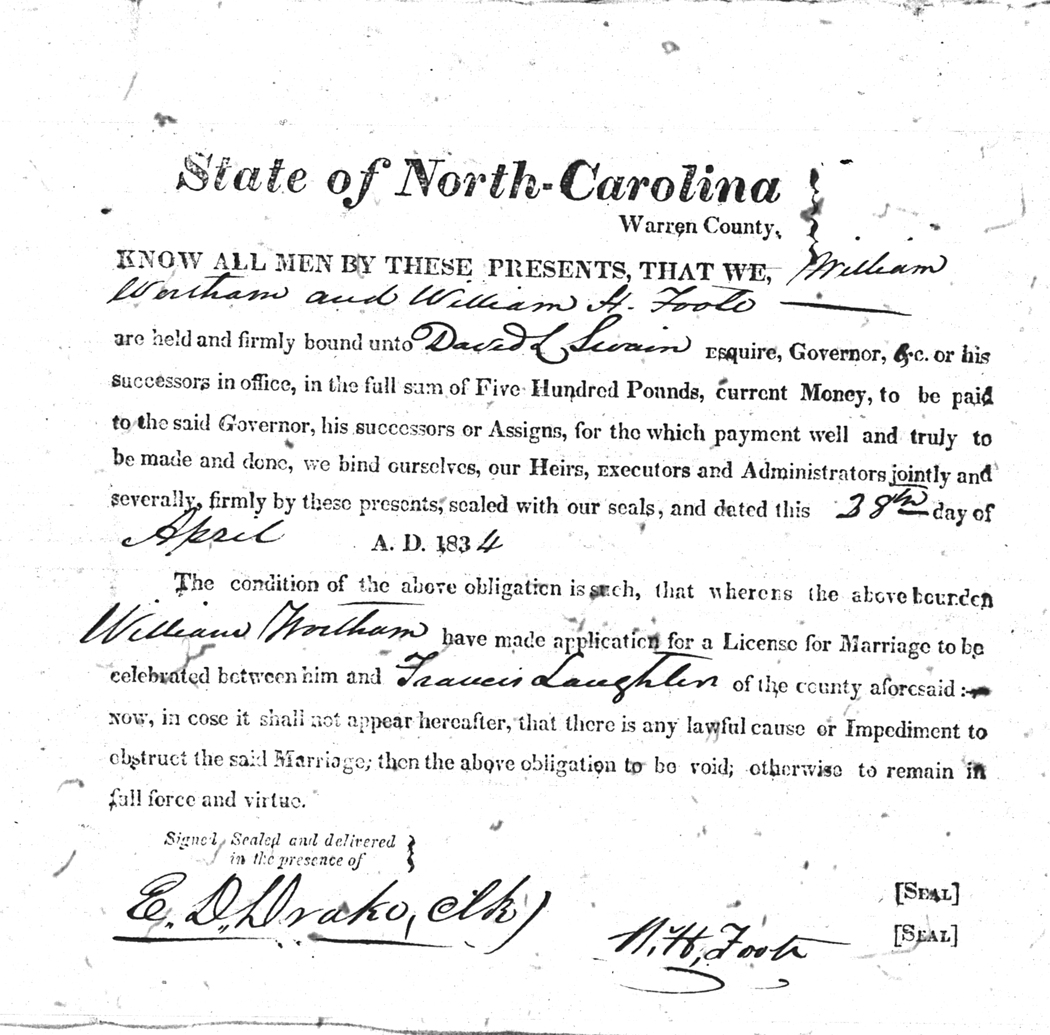 State of North-Carolina
Warren County,
KNOW ALL MEN BY THESE PRESENTS, THAT WE, William
Wortham and William H. Foote
are held and firmly bound unto David L Swain ESquire, Governor, &c. or his
successors in office, in the full sum of Five Hundred Pounds, current Money, to be paid
to the said Governor, his successors or Assigns, for the which payment well and truly to
be made and done, we bind ourselves, our Heirs, Executors and Administrators jointly and
severally, firmly by these presents, sealed with our seals, and dated this 28th day of
April A. D. 1834
The condition of the above obligation is such, that whereas the above bounden
William Wortham have made application for a License for Marriage to be
celebrated between him and Francis Laughter of the county aforesaid:
now, in case it shall not appear hereafter, that there is any lawful cause or Impediment to
obstruct the said Marriage; then the above obligation to be void; otherwise to remain in
full force and virtue.
Signed, Sealed and delivered
in the presence of
E. D. Drake, Clk
[SEAL]
W. H. Foote [SEAL]